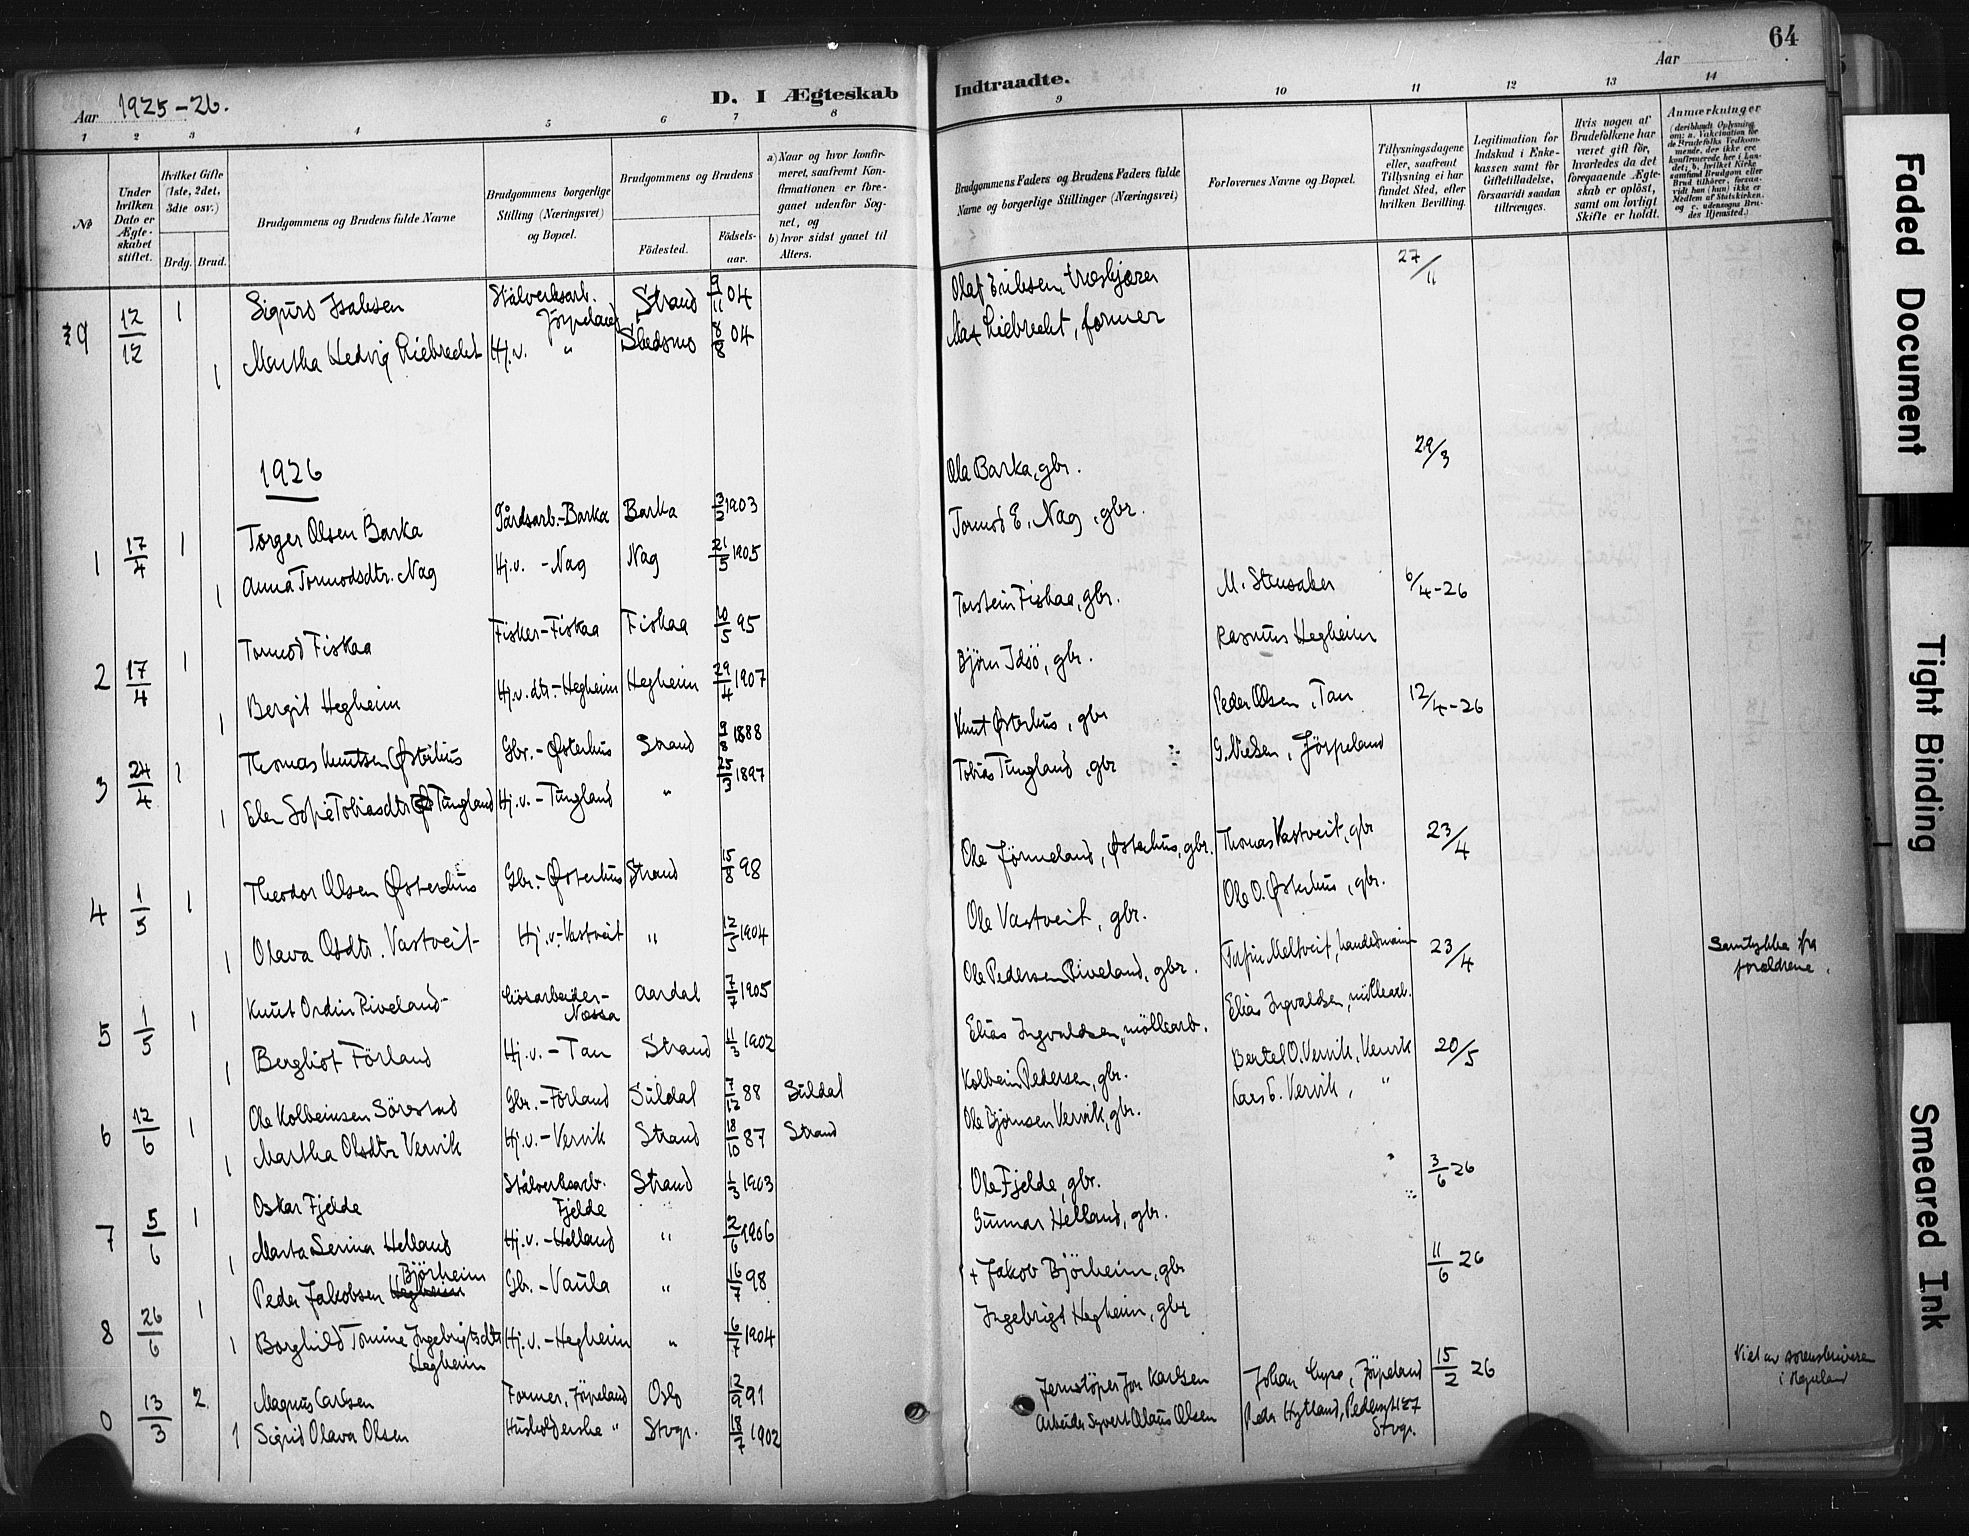 64
Aar 1925-26.
D. I Ægteskab
Indtraadte.
Aar
1 2 3 4 5 6 7 8 9 10 11 12 13 14
№
Under hvilken Dato er Ægteskabet stiftet.
Hvilket Gifte (1ste, 2det, 3die osv.)
Brdg. Brud.
Brudgommens og Brudens fulde Navne
Brudgommens borgerlige Stilling (Næringsvei) og Bopæl.
Brudgommens og Brudens
Fødested.
Fødselsaar.
a) Naar og hvor konfirmeret, saafremt Konfirmationen er foregaaet udenfor Sognet, og
b) hvor sidst gaaet til Alters.
Brudgommens Faders og Brudens Faders fulde Navne og borgerlige Stillinger (Næringsvei)
Forlovernes Navne og Bopæl.
Tillysningsdagene eller, saafremt Tillysning ei har fundet Sted, efter hvilken Bevilling.
Legitimation for Indskud i Enkekassen samt for Giftetilladelse, forsaavidt saadan tiltrænges.
Hvis nogen af Brudefolkene har været gift før, hvorledes da det foregaaende Ægteskab er opløst, samt om lovligt Skifte er holdt.
Anmærkninger
9 12/12 1 Sigurd Isaksen Stålverksarb. Jörpeland Strand 9/11 04 27/11
1 Martha Hedvig Liebrecht Hj.v. " Skedsmo 8/8 04 Max Liebrecht, former
1926
1 17/4 1 Torger Olsen Barka Gårdsarb.-Barka Barka 3/2 1903 Ole Barka, gbr. 29/3
1 Anna Tormodsdtr. Nag Hj.v. -Nag Nag 21/5 1905 Tormod E. Nag, gbr.
2 17/4 1 Tormod Fiskaa Fisker-Fiskaa Fiskaa 10/5 95 Torstein Fiskaa, gbr. M. Stensaker 6/4-26
1 Bergit Hegheim Hj.v. dtr.-Hegheim Hegheim 29/4 1907 Björn Idsö, gbr. Rasmus Hegheim
3 24/4 1 Thomas Knutsen Østerhus Gbr.-Østerhus Strand 9/8 1888 Knut Østerhus, gbr Peder Olsen, Tau 12/4-26
1 Elen Sofie Tobiasdtr Tungland Hj.v.-Tungland " 25/3 1897 Tobias Tungland, gbr G. Nielsen, Jörpeland
4 1/5 1 Theodor Olsen Østerhus Gbr.-Østerhus Strand 15/8 98 Ole Jörmeland, Østerhus, gbr. Thomas Vastveit, gbr 23/4
1 Olava Olsdtr. Vastveit Hj.v.-Vastveit " 12/5 1904 Ole Vastveit, gbr. Ole O. Østerhus, gbr.
5 1/5 1 Knut Ordin Riveland Næssa Aardal 7/7 1905 Ole Pedersen Riveland, gbr. Meltveit, 23/4 Samtykke fra forældrene.
1 Bergliot Förland Hj.v.-Tau Strand 11/3 1902 Elias Ingvaldsen, möllearb. Elias Ingvaldsen, möllearb.
6 12/6 1 Ole Kolbeinsen Sörestad Gbr.-Förland Suldal 7/12 88 Suldal Kolbein Pedersen, gbr. Bertel O. Vervik, Vervik 20/5
1 Martha Olsdtr Vervik Hj.v.-Vervik Strand 18/10 87 Strand Ole Björnsen Vervik, gbr. Lars E. Vervik, "
7 5/6 1 Oskar Fjelde Stålverksarb. Fjelde Strand 1/3 1903 Ole Fjelde, gbr. 3/6 26
1 Marta Serina Helland Hj.v.-Helland " 2/6 1906 Gunnar Helland, gbr.
8 26/6 1 Peder Jakobsen Hegheim Björheim Gbr.-Vaula " 16/7 98 + Jakob Björheim, gbr 11/6 26
1 Borghild Tomine Ingebrigtsdtr Hegheim Hj.v.-Hegheim " 6/7 1904 Ingebrigt Hegheim, gbr
0 13/3 2 Magnus Carlsen Former, Jörpeland Oslo 12/9 91 Jernstöper Karlsen Johan Jörpeland 15/2 26
1 Sigrid Olava Olsen Husholderske " Stvgr. 18/7 1902 Arbeider Syvert Olaus Olsen Peder Hytland, Pedersgt 127 Stvgr.
Faded Document
Tight Binding
Smeared Ink